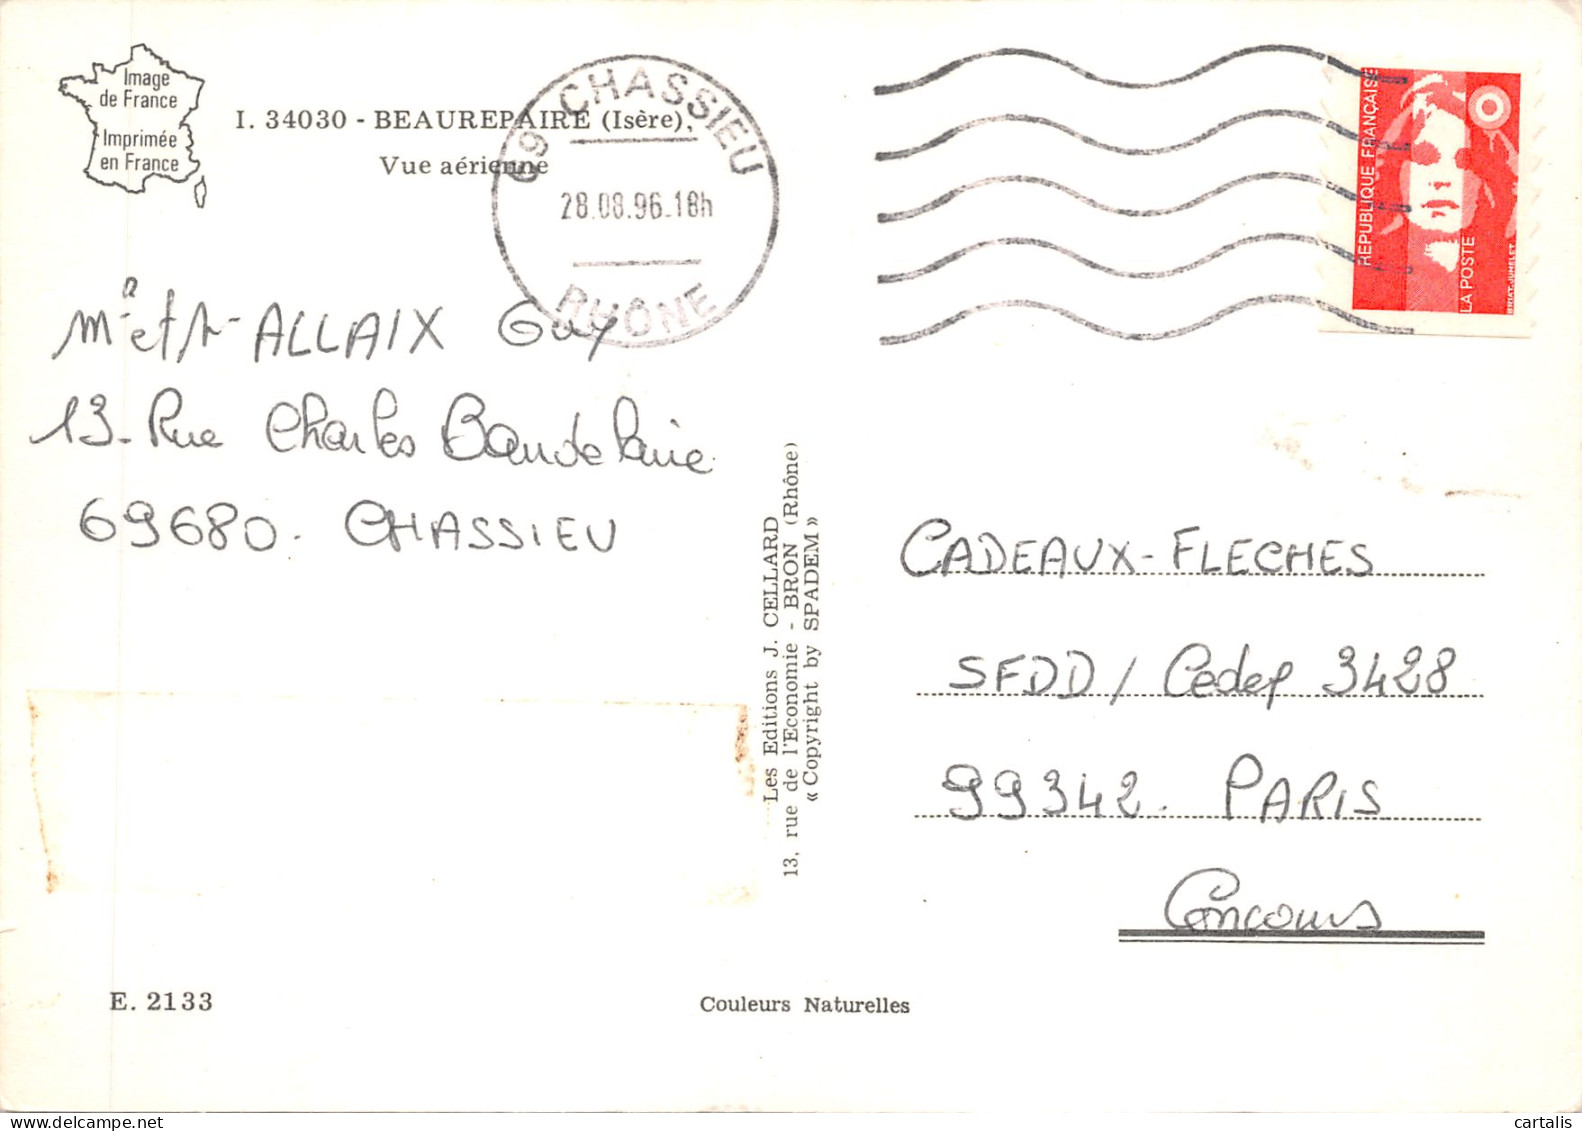 Image
de France
Imprimée
en France
I. 34030 - BEAUREPAIRE (Isère),
Vue aérienne
69 CHASSIEU
28.08.96.18h
RHÔNE
REPUBLIQUE FRANÇAISE
LA POSTE
BRIAT-JUMELET
ALLAIX Guy
13 - Rue Charles Baudelaire
69680 - CHASSIEU
Les Editions J. CELLARD
13, rue de l'Economie - BRON (Rhône)
« Copyright by SPADEM »
CADEAUX - FLECHES
SFDD / Cedex 3428
99342 - PARIS
Concours
E. 2133
Couleurs Naturelles
cartalis